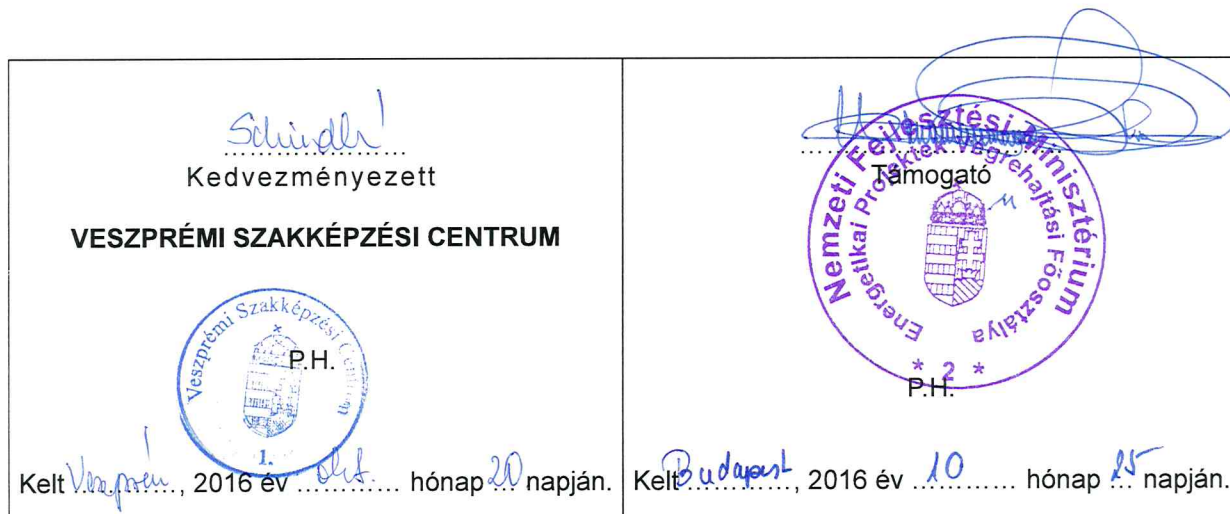 Kedvezményezett
VESZPRÉMI SZAKKÉPZÉSI CENTRUM
Veszprémi Szakképzési Centrum
1.
P.H.
Kelt Veszprém, 2016 év okt. hónap 20 napján.
Támogató
Nemzeti Fejlesztési Minisztérium
Energetikai Projektek Végrehajtási Főosztálya
* 2 *
P.H.
Kelt Budapest, 2016 év 10 hónap 25 napján.